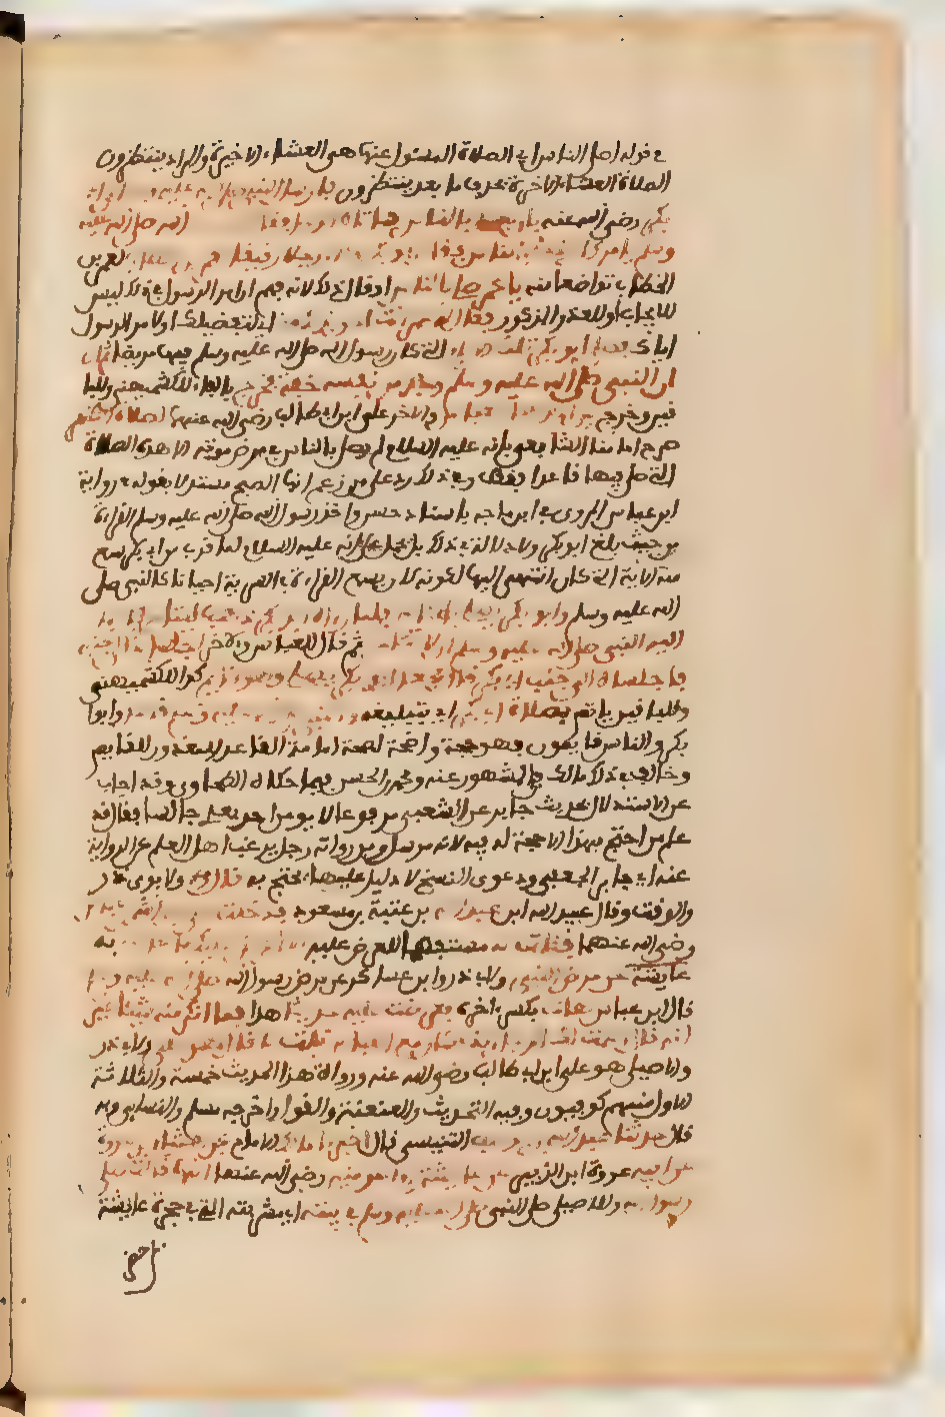 في قوله اصل الناس اي الصلاة المسئول عنها هي العشاء الاخيرة والمراد ينتظرون
الصلاة العشاء الاخرة بحذف ما بعد ينتظرون فارسل النبي صلى الله عليه وسلم الى ابي
بكر رضي الله عنه بان يصلي بالناس فاتاه الرسول فقال ان رسول الله صلى الله عليه
وسلم يامرك ان تصلي بالناس فقال ابو بكر وكان رجلا رفيقا لعمر بن
الخطاب تواضعا منه يا عمر صل بالناس او قال ذلك لانه فهم ان امر الرسول في ذلك ليس
للايجاب او للعذر المذكور فقال له عمر انت احق بذلك اي لتفضيلك او لامر الرسول
اياك فصلى ابو بكر تلك الايام التي كان رسول الله صلى الله عليه وسلم فيها مريضا ثم
ان النبي صلى الله عليه وسلم وجد من نفسه خفة فخرج بالفاء للكشميهني وللبا
قين وخرج بين رجلين احدهما العباس والاخر علي ابن ابي طالب رضي الله عنهما لصلاة الظهر
صرح امامنا الشافعي بانه عليه السلام لم يصل بالناس في مرض موته الا هذه الصلاة
التي صلى فيها قاعدا فقط وفي ذلك رد على من زعم انها الصبح مستدلا بقوله في رواية
ابن عباس المروي في ابن ماجه باسناد حسن واخذ رسول الله صلى الله عليه وسلم القراءة
من حيث بلغ ابو بكر ولا دلالة في ذلك بل يحمل على انه عليه السلام لما قرب من ابي بكر سمع
منه الاية التي كان انتهى اليها لكونه كان يسمع القراءة في السرية احيانا كالنبي صلى
الله عليه وسلم وابو بكر يصلي بالناس فلما راه ابو بكر ذهب ليتاخر فاوما
اليه النبي صلى الله عليه وسلم ان لا يتاخر ثم قال للعباس والاخر اجلساني الى جنبه
فاجلساه الى جنب ابي بكر قال فجعل ابو بكر يصلي وهو قائم كذا للكشميهني
وللباقين ياتم بصلاة النبي صلى الله عليه وسلم والناس بصلاة ابي بكر اي بتبليغه
بكر والناس قايمون فهو حجة واضحة لصحة امامة القاعد المعذور للقايم
وخالف في ذلك مالك في المشهور عنه ومحمد بن الحسن فيما حكاه الطحاوي وقد اجاب
عن الاستدلال بحديث جابر عن الشعبي مرفوعا لا يؤمن احد بعدي جالسا فقال قد
علم من احتج بهذا ان لا حجة له فيه لانه مرسل ومن رواية رجل يرغب اهل العلم عن الرواية
عنه اي جابر الجعفي ودعوى النسخ لا دليل عليها يحتج به قال ولابوي ذر
والوقت وقال عبيد الله ابن عبد الله بن عتبة بن مسعود فدخلت على عبد الله بن عباس
رضي الله عنهما فقلت له مستفهما للعرض عليه الا اعرض عليك ما حدثتني به
عايشة عن مرض النبي ولابي ذر وابن عساكر عن مرض رسول الله صلى الله عليه وسلم
قال ابن عباس هات بكسر اخره فعرضت عليه حديثها هذا فما انكر منه شيئا غير
انه قال اسمت لك الرجل الذي كان مع العباس قلت لا قال هو علي ولابي ذر
والاصيلي هو علي ابن ابي طالب رضي الله عنه ورواة هذا الحديث خمسة والثلاثة
الاول منهم كوفيون وفيه التحديث والعنعنة والقول واخرجه مسلم والنسائي وبه
قال حدثنا عبد الله بن يوسف التنيسي قال اخبرنا مالك الامام عن هشام بن عروة
عن ابيه عروة ابن الزبير عن عايشة ام المومنين رضي الله عنها انها قالت صلى
رسول الله وللاصيلي صلى النبي صلى الله عليه وسلم في بيته اي مشربته التي في حجرة عايشة